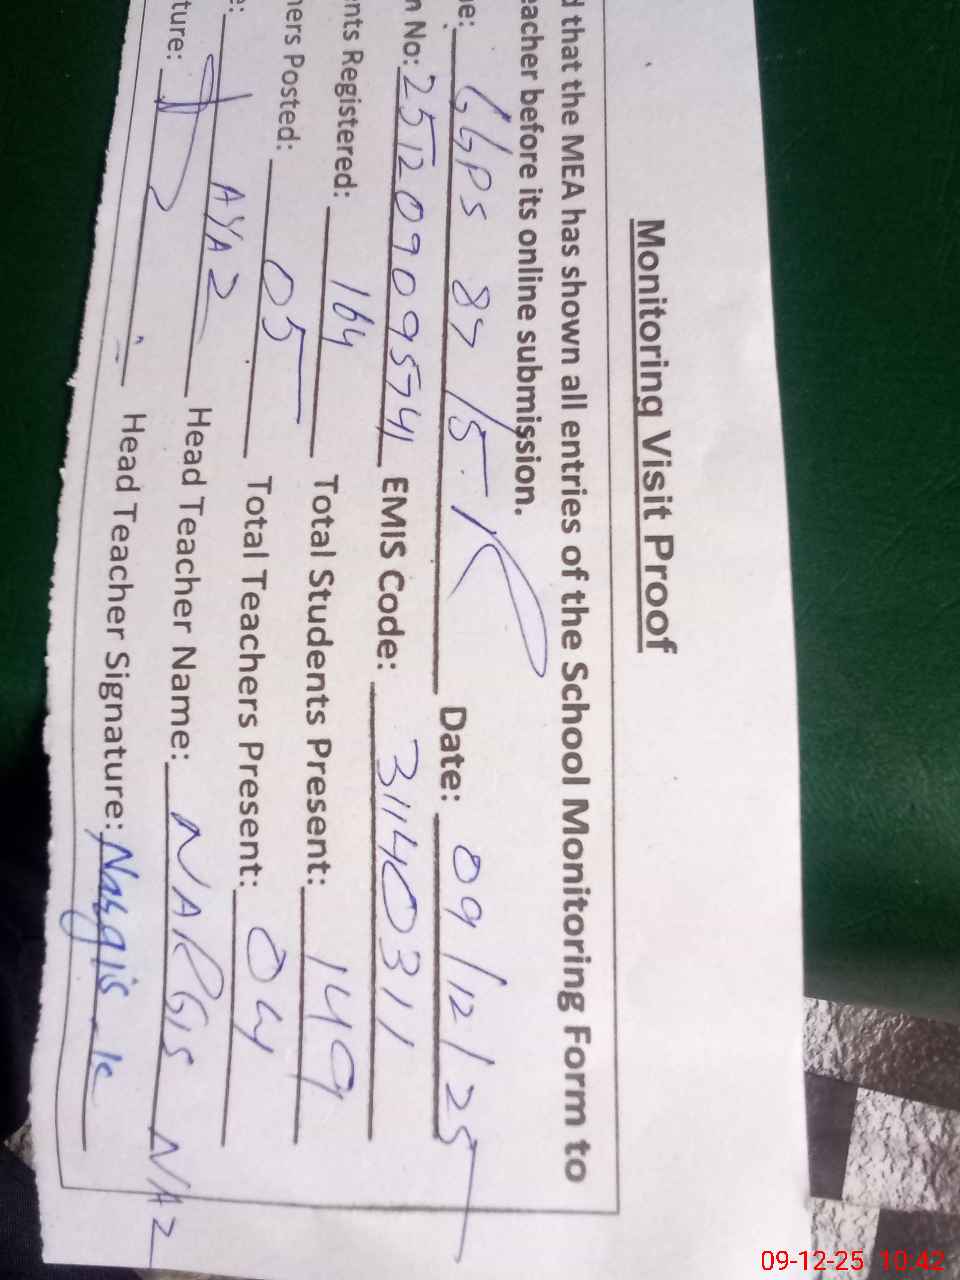 Monitoring Visit Proof
d that the MEA has shown all entries of the School Monitoring Form to
eacher before its online submission.
e: GGPS 87/5.R Date: 09/12/25
n No: 251209095741 EMIS Code: 31140311
nts Registered: 164 Total Students Present: 149
ers Posted: 05 Total Teachers Present: 04
e: AYAZ Head Teacher Name: NARGIS NAZ
ture: Head Teacher Signature: Nargis
09-12-25 10:42